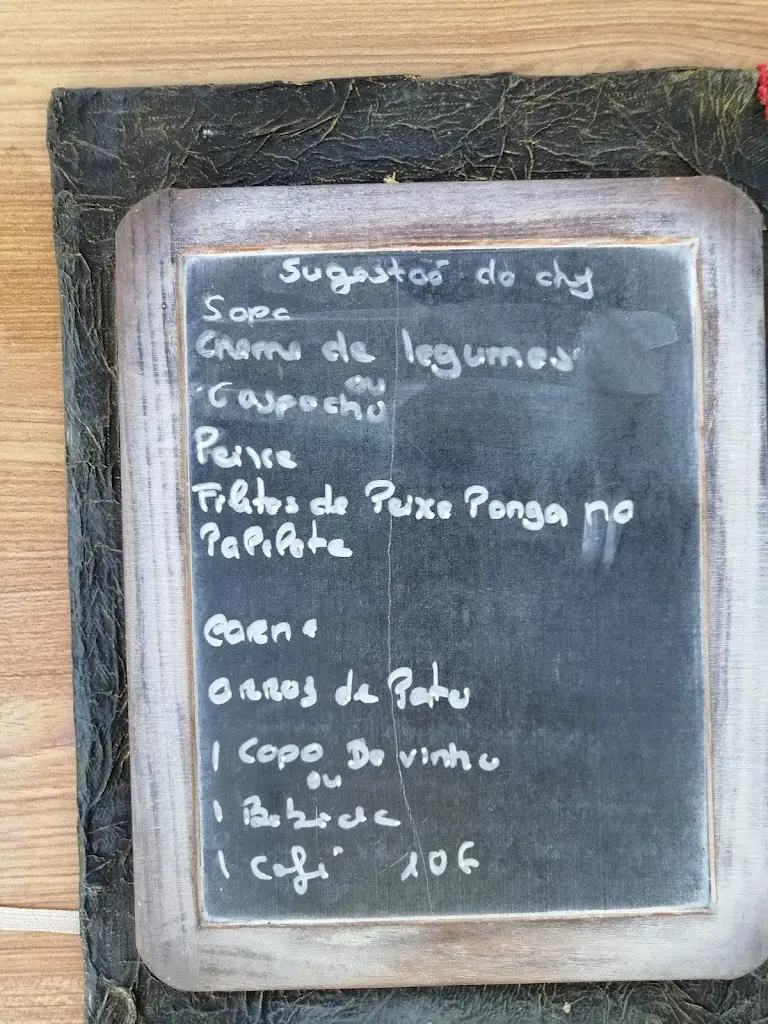 Sugestoõ do chef
Sopa
Creme de legumes
ou
Gaspacho
Peixe
Filetes de Peixe Panga no
PaPiPote
Carne
Arros de Pato
1 Copo De vinho
ou
1 Bebida
1 Café 10€